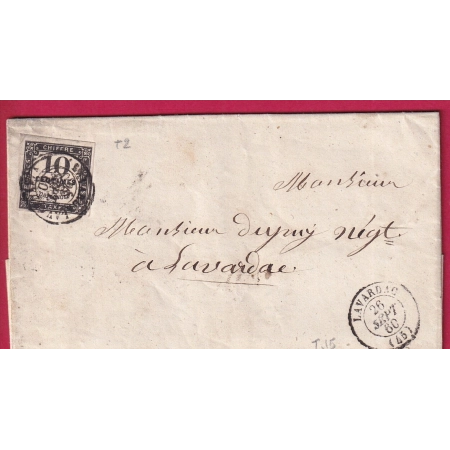 CHIFFRE
10
T2
Monsieur
Monsieur Dupuy négt
à Lavardac
LAVARDAC
26
SEPT
60
(45)
T.15